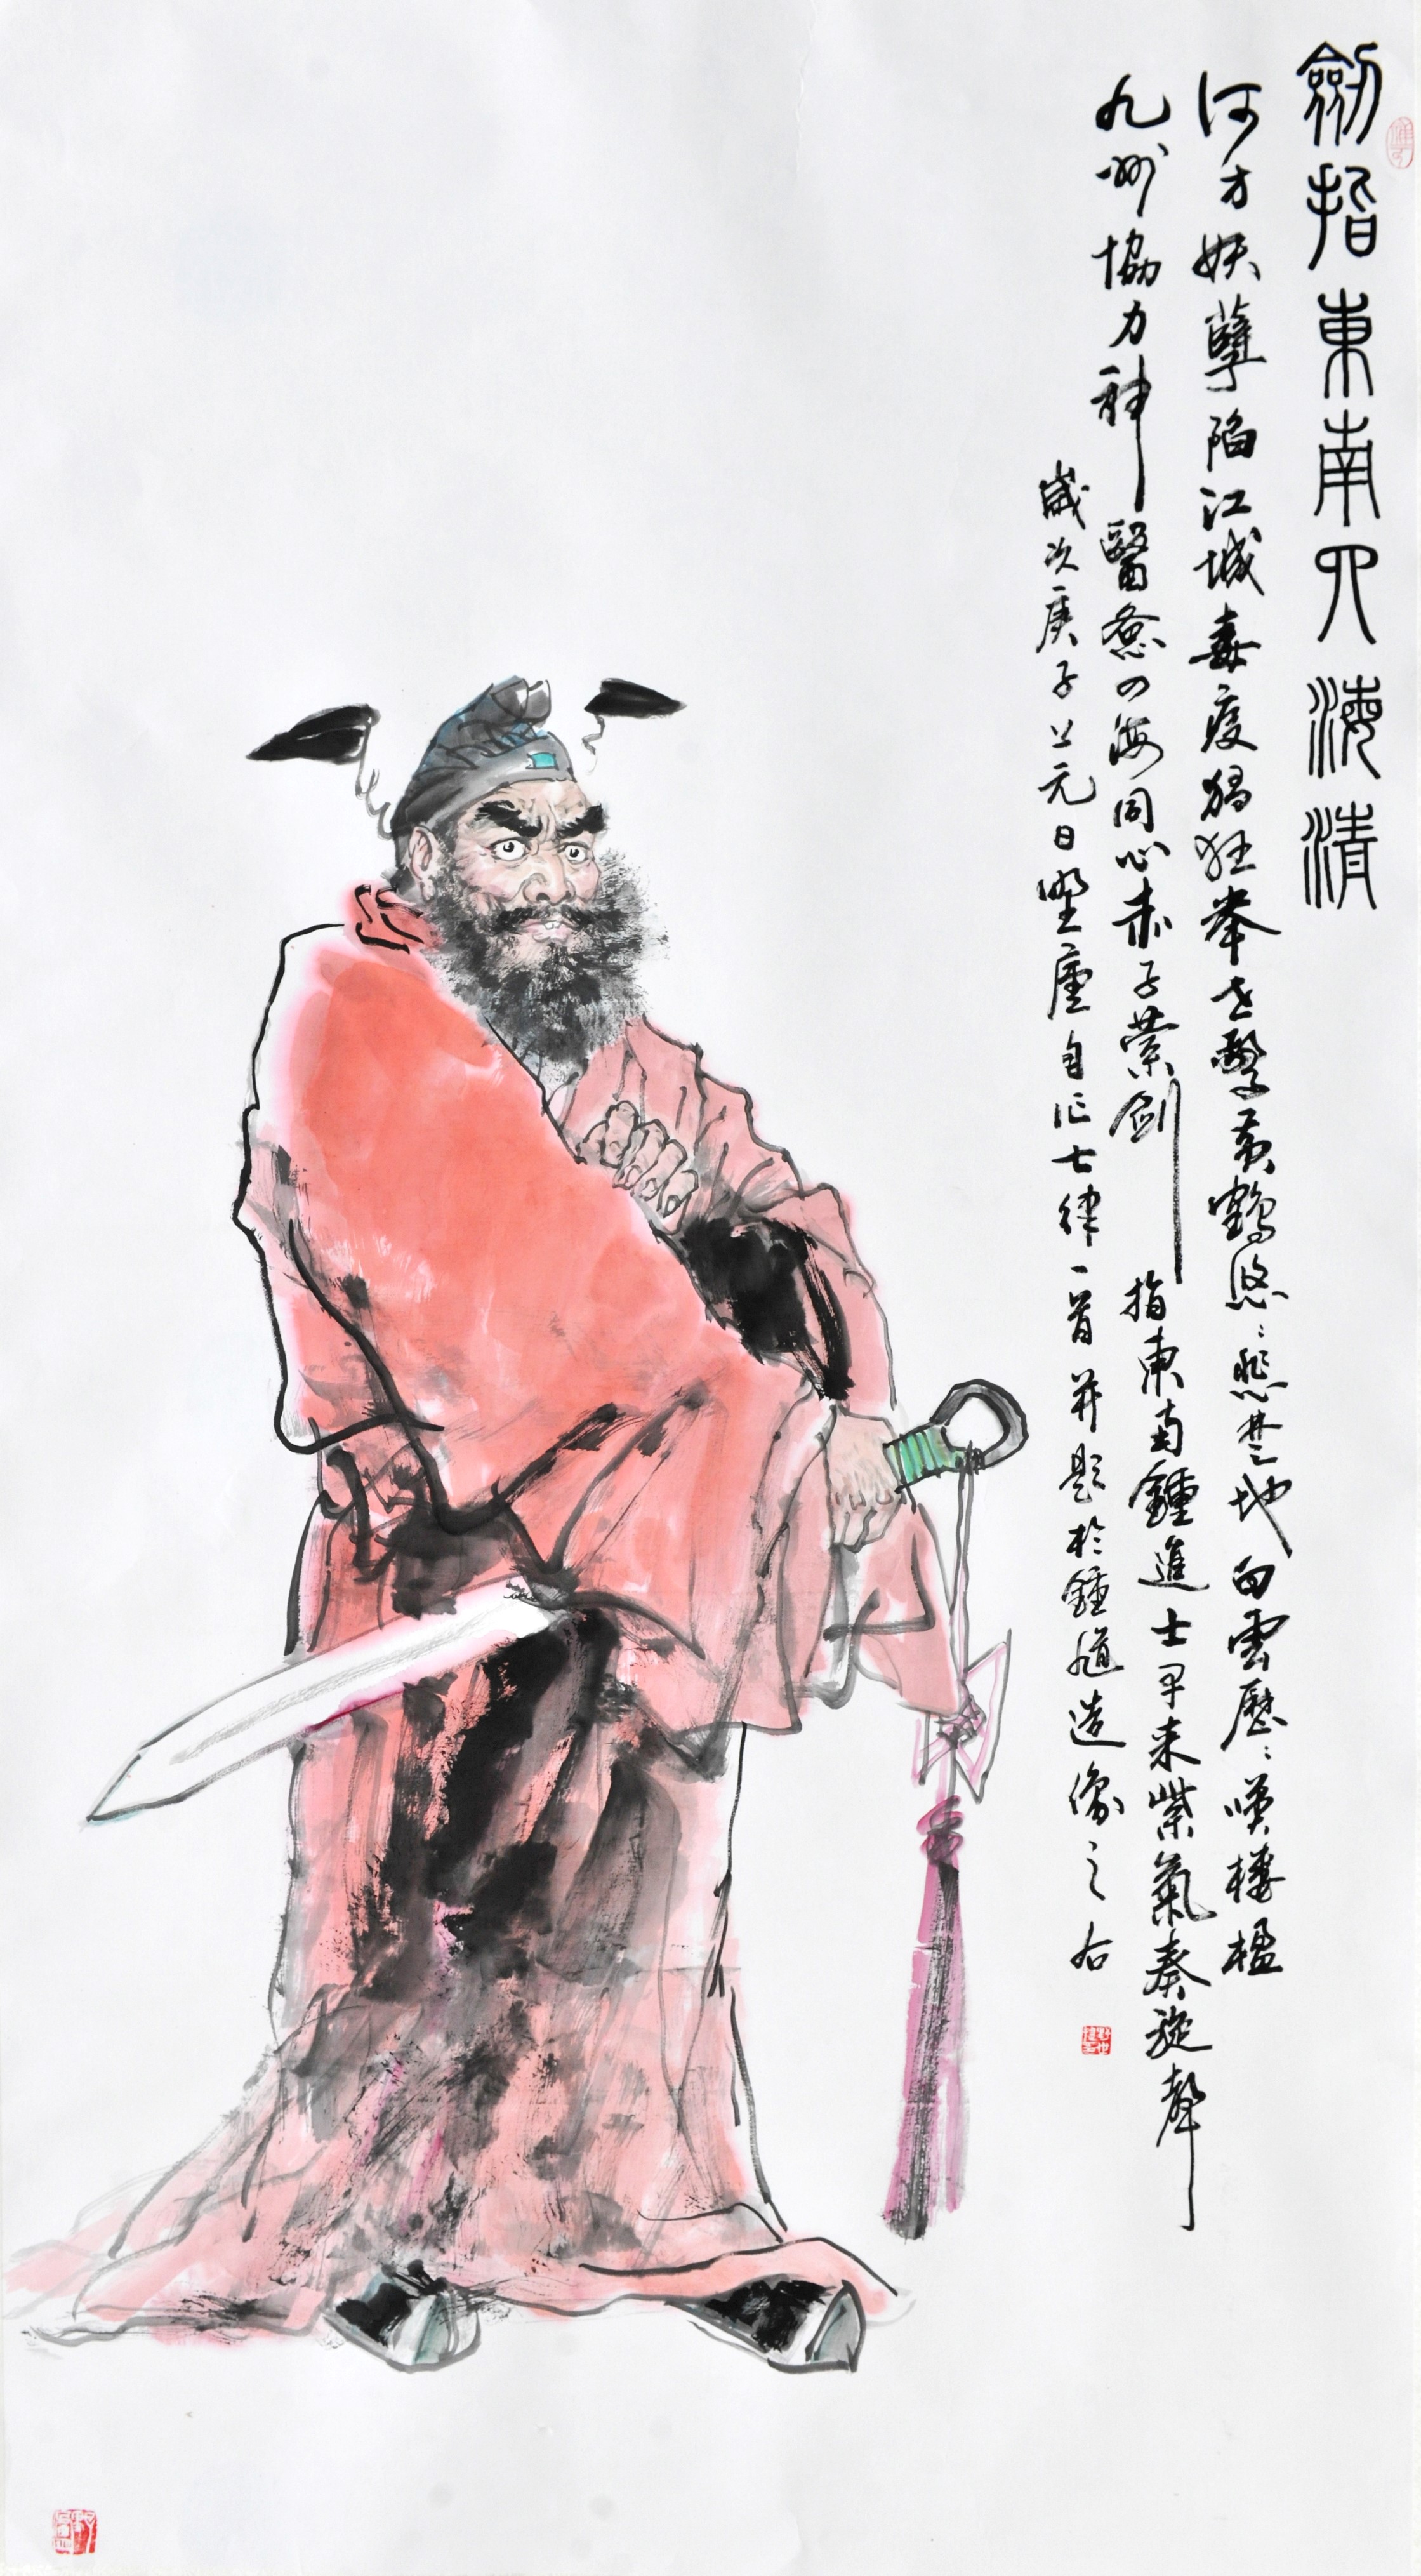 劍指東南四海清
何方妖孽陷江城毒疫猖狂舉世驚黃鶴悠〻悲楚地白雲歷〻嘆樓楹
九州協力神醫愈四海同心赤子縈劍指東南鍾進士早來紫氣奏旋聲
歲次庚子上元日墅廬自作七律一首并題於鍾馗造像之右